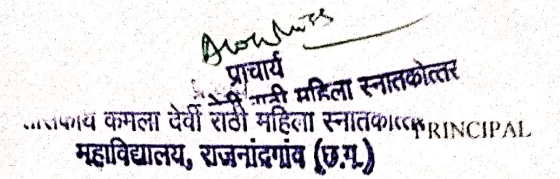 प्राचार्य
देवी राठी महिला स्नातकोत्तर
कमला देवी राठी महिला स्नातकोत्तर PRINCIPAL
महाविद्यालय, राजनांदगांव (छ.ग.)